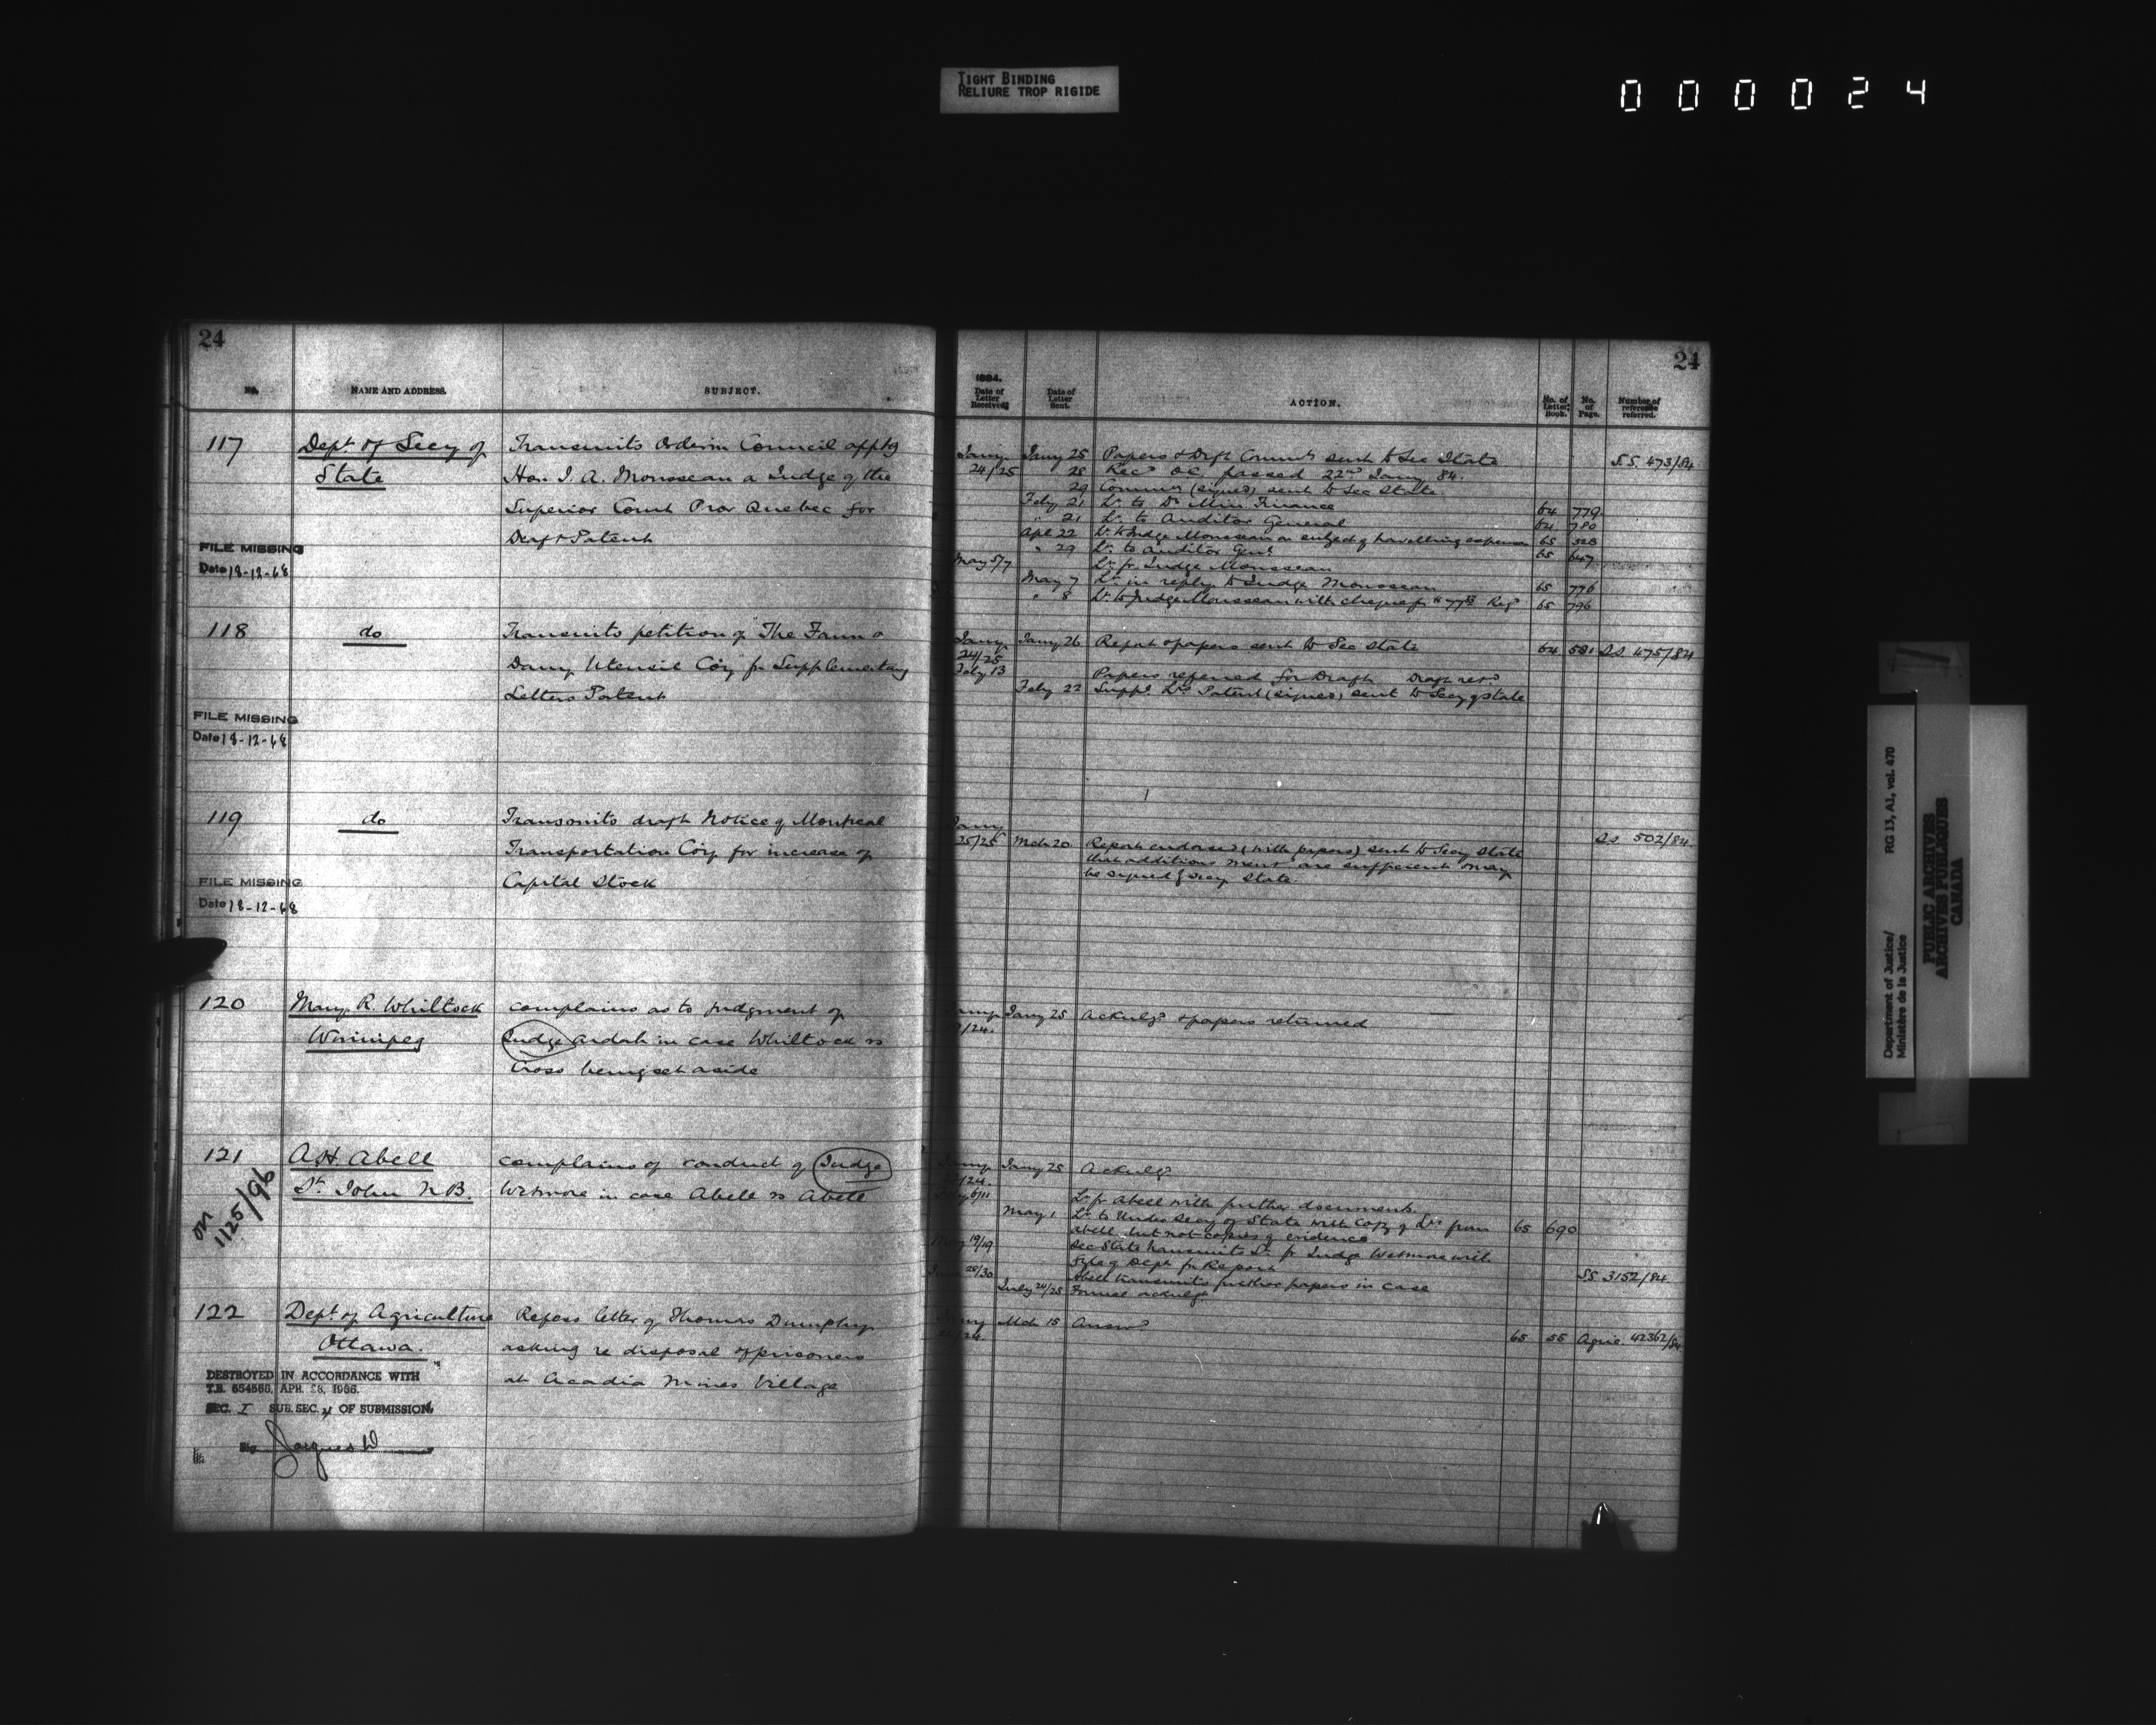 TIGHT BINDING
RELIURE TROP RIGIDE
000024
24
NO.
NAME AND ADDRESS.
SUBJECT.
117
Dept of Secy of
State
Transmits Order in Council apptg
Hon. J. A. Mousseau a Judge of the
Superior Court Prov Quebec for
Draft Patent
FILE MISSING
Date 18-12-68
118
do
Transmits petition of "The Farm &
Dairy Utensil Coy" for Supplementary
Letters Patent
FILE MISSING
Date 18-12-68
119
do
Transmits draft Notice of Montreal
Transportation Coy for increase of
Capital Stock
FILE MISSING
Date 18-12-68
120
Mary R. Whiltock
Winnipeg
complains as to judgment of
Judge Ardah in case Whiltock vs
Cross being set aside
121
on 1125/96
A.H. Abell
St. John N.B.
complains of conduct of Judge
Wetmore in case Abell vs Abell
122
Dept of Agriculture
Ottawa.
Refers letter of Thomas Dumphy
asking re disposal of prisoners
at Acadia Mines Village
DESTROYED IN ACCORDANCE WITH
T.B. 654560, APR. 28, 1966.
SEC. I SUB. SEC. 4 OF SUBMISSION.
24
1884.
Date of Letter Received.
Date of Letter Sent.
ACTION.
No. of Letter Book.
No. of Page.
Number of reference referred.
Jany 24/25 Jany 25 Papers & Dft Commn sent to Sec State S.S. 473/84
28 Recd O.C. passed 22nd Jany 84.
29 Commn (signed) sent to Sec State.
Feby 21 Lr. to Dr Min Finance 64 779
" 21 Lr. to Auditor General 64 780
Apl 22 Lr. to Judge Mousseau on subject of travelling expenses 65 528
" 29 Lr. to Auditor Genl 65 647
May 5/7 Lr. fr. Judge Mousseau
May 7 Lr. in reply to Judge Mousseau 65 776
" 8 Lr. to Judge Mousseau with cheque for Regd 65 796
Jany 24/25 Jany 26 Report & papers sent to Sec State 64 581 S.S. 475/84
Feby 13 Papers referred for Draft Draft retd
Feby 22 Suppl. Lrs Patent (signed) sent to Secy of State
Jany 25/25 Mch 20 Report endorsed (with papers) sent to Secy State S.S. 502/84.
that additions are sufficient & may
be signed by Secy State.
Jany 25 Acknlgd & papers returned
Jany 25 Acknlgd
Lr. fr. Abell with further documents.
May 1 Lr. to Under Secy of State with copy of Lrs from 65 690
Abell but not copies of evidence
May 19/19 Sec State transmits Lr. fr Judge Wetmore with
file of Dept for Report S.S. 3152/84
June 28/30 Abell transmits further papers in case
July 24/25 Formal acknlgt
Mch 15 Answd 65 55 Agric. 42362/84
Department of Justice/
Ministère de la Justice
RG 13, A1, vol. 470
PUBLIC ARCHIVES
ARCHIVES PUBLIQUES
CANADA